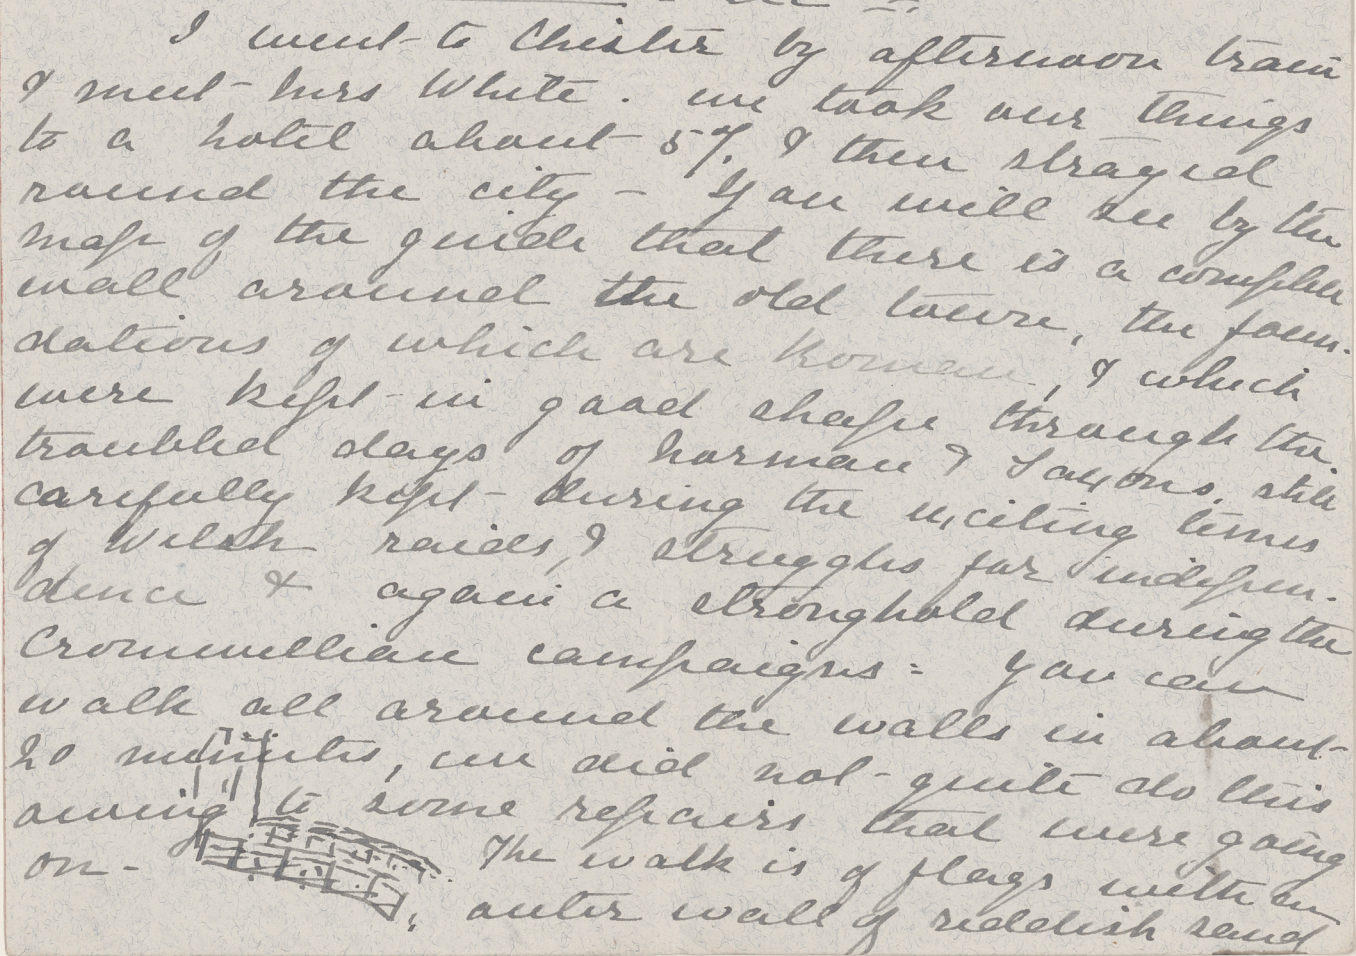 I went to Chester by afternoon train
& met Mrs White. we took our things
to a hotel about 5 & then strayed
round the city - You will see by the
map of the guide that there is a complete
wall around the old town, the foun-
dations of which are Roman, & which
were kept in good shape through the
troubled days of Norman & Saxons, still
carefully kept during the exciting times
of Welsh raids, & struggles for indepen-
dence & again a stronghold during the
Cromwellian campaigns: You can
walk all around the walls in about
20 minutes, we did not quite do this
owing to some repairs that were going
on - The walk is of flags with an
outer wall of reddish sand